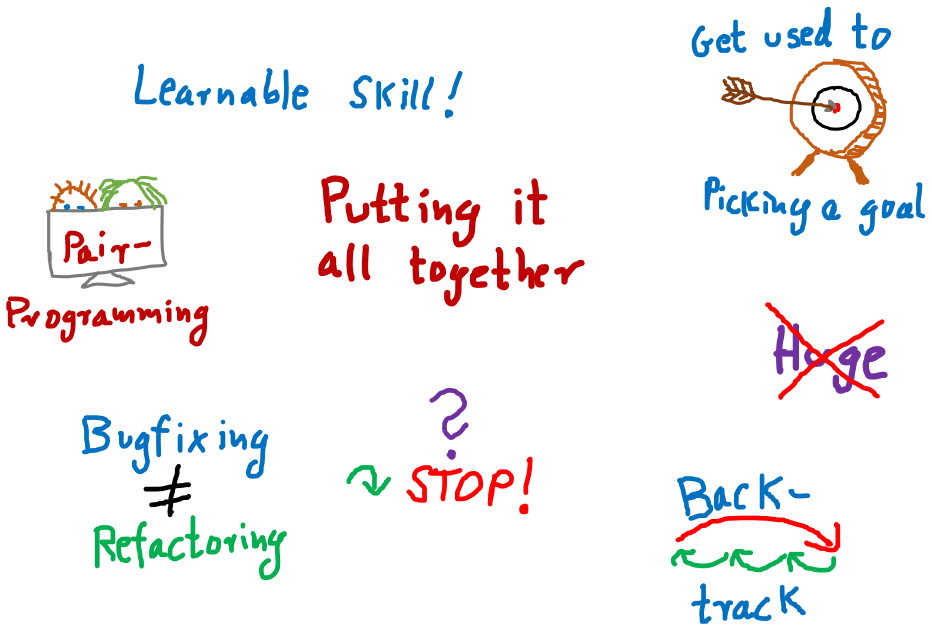 Learnable Skill!
Get used to
Picking a goal
Pair-
Programming
Putting it
all together
Huge
Bugfixing
≠
Refactoring
?
STOP!
Back-
track